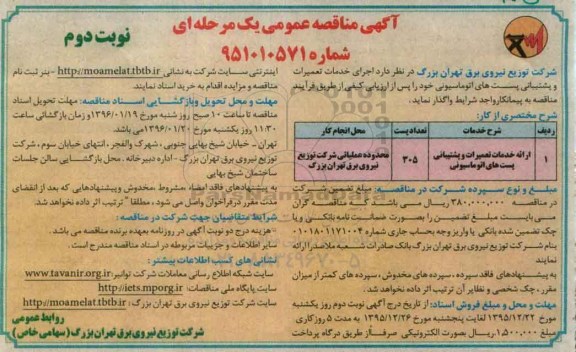 آگهی مناقصه عمومی یک مرحله ای
شماره ۹۵۱۰۱۰۵۷۱
نوبت دوم
شرکت توزیع نیروی برق تهران بزرگ در نظر دارد اجرای خدمات تعمیرات
و پشتیبانی پست های اتوماسیونی خود را پس از ارزیابی کیفی از طریق فرآیند
مناقصه به پیمانکار واجد شرایط واگذار نماید.
شرح مختصری از کار:
ردیف شرح خدمات تعداد پست محل انجام کار
۱ ارائه خدمات تعمیرات و پشتیبانی پست های اتوماسیونی ۳۰۵ محدوده عملیاتی شرکت توزیع نیروی برق تهران بزرگ
مبلغ و نوع سپرده شرکت در مناقصه: مبلغ تضمین شرکت
در مناقصه ۳۸۰,۰۰۰,۰۰۰ ریال می باشد که مناقصه گران
می بایست مبلغ تضمین را بصورت ضمانت نامه بانکی و یا
چک تضمین شده بانکی یا واریز وجه بحساب جاری شماره ۰۱۰۱۸۰۱۱۷۱۰۰۴
بنام شرکت توزیع نیروی برق تهران بزرگ بانک صادرات شعبه ملاصدرا ارائه
نمایند
به پیشنهادهای فاقد سپرده، سپرده های مخدوش، سپرده های کمتر از میزان
مقرر، چک شخصی و نظایر آن ترتیب اثر داده نخواهد شد.
مهلت و محل و مبلغ فروش اسناد: از تاریخ درج آگهی نوبت دوم روز یکشنبه
مورخ ۱۳۹۵/۱۲/۲۲ لغایت پنجشنبه مورخ ۱۳۹۵/۱۲/۲۶ به مدت ۵ روز کاری
مبلغ ۱,۵۰۰,۰۰۰ ریال بصورت الکترونیکی صرفاً از طریق درگاه پرداخت
اینترنتی سایت شرکت به نشانی http://moamelat.tbtb.ir - بنر ثبت نام
مناقصه و مزایده اقدام به خرید اسناد نمایند.
مهلت و محل تحویل و بازگشایی اسناد مناقصه: مهلت تحویل اسناد
مناقصه تا ساعت ۱۰ صبح روز شنبه مورخ ۱۳۹۶/۰۱/۱۹ و زمان بازگشائی ساعت
۱۱/۳۰ روز یکشنبه مورخ ۱۳۹۶/۰۱/۲۰ می باشد.
تهران - خیابان شیخ بهایی جنوبی، شهرک والفجر، انتهای خیابان سوم، شرکت
توزیع نیروی برق تهران بزرگ - اداره دبیرخانه. محل بازگشایی سالن جلسات
ساختمان شیخ بهایی
به پیشنهادهای فاقد امضاء، مشروط، مخدوش و پیشنهادهایی که بعد از انقضای
مدت مقرر در فراخوان واصل می شود، مطلقاً ترتیب اثر داده نخواهد شد.
شرایط متقاضیان جهت شرکت در مناقصه:
- هزینه درج دو نوبت آگهی در روزنامه بعهده برنده مناقصه می باشد.
سایر اطلاعات و جزئیات مربوطه در اسناد مناقصه مندرج است.
نشانی های کسب اطلاعات بیشتر:
سایت شبکه اطلاع رسانی معاملات شرکت توانیر: www.tavanir.org.ir
سایت پایگاه ملی مناقصات: http://iets.mporg.ir
سایت شرکت توزیع نیروی برق تهران بزرگ: http://moamelat.tbtb.ir
روابط عمومی
شرکت توزیع نیروی برق تهران بزرگ (سهامی خاص)